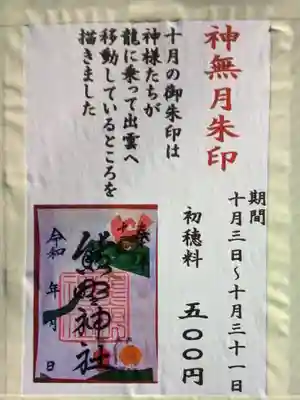 神無月朱印
期間
十月三日～十月三十一日
初穂料　五〇〇円
十月の御朱印は
神様たちが
龍に乗って出雲へ
移動しているところを
描きました
熊野神社
令和　年　月　日